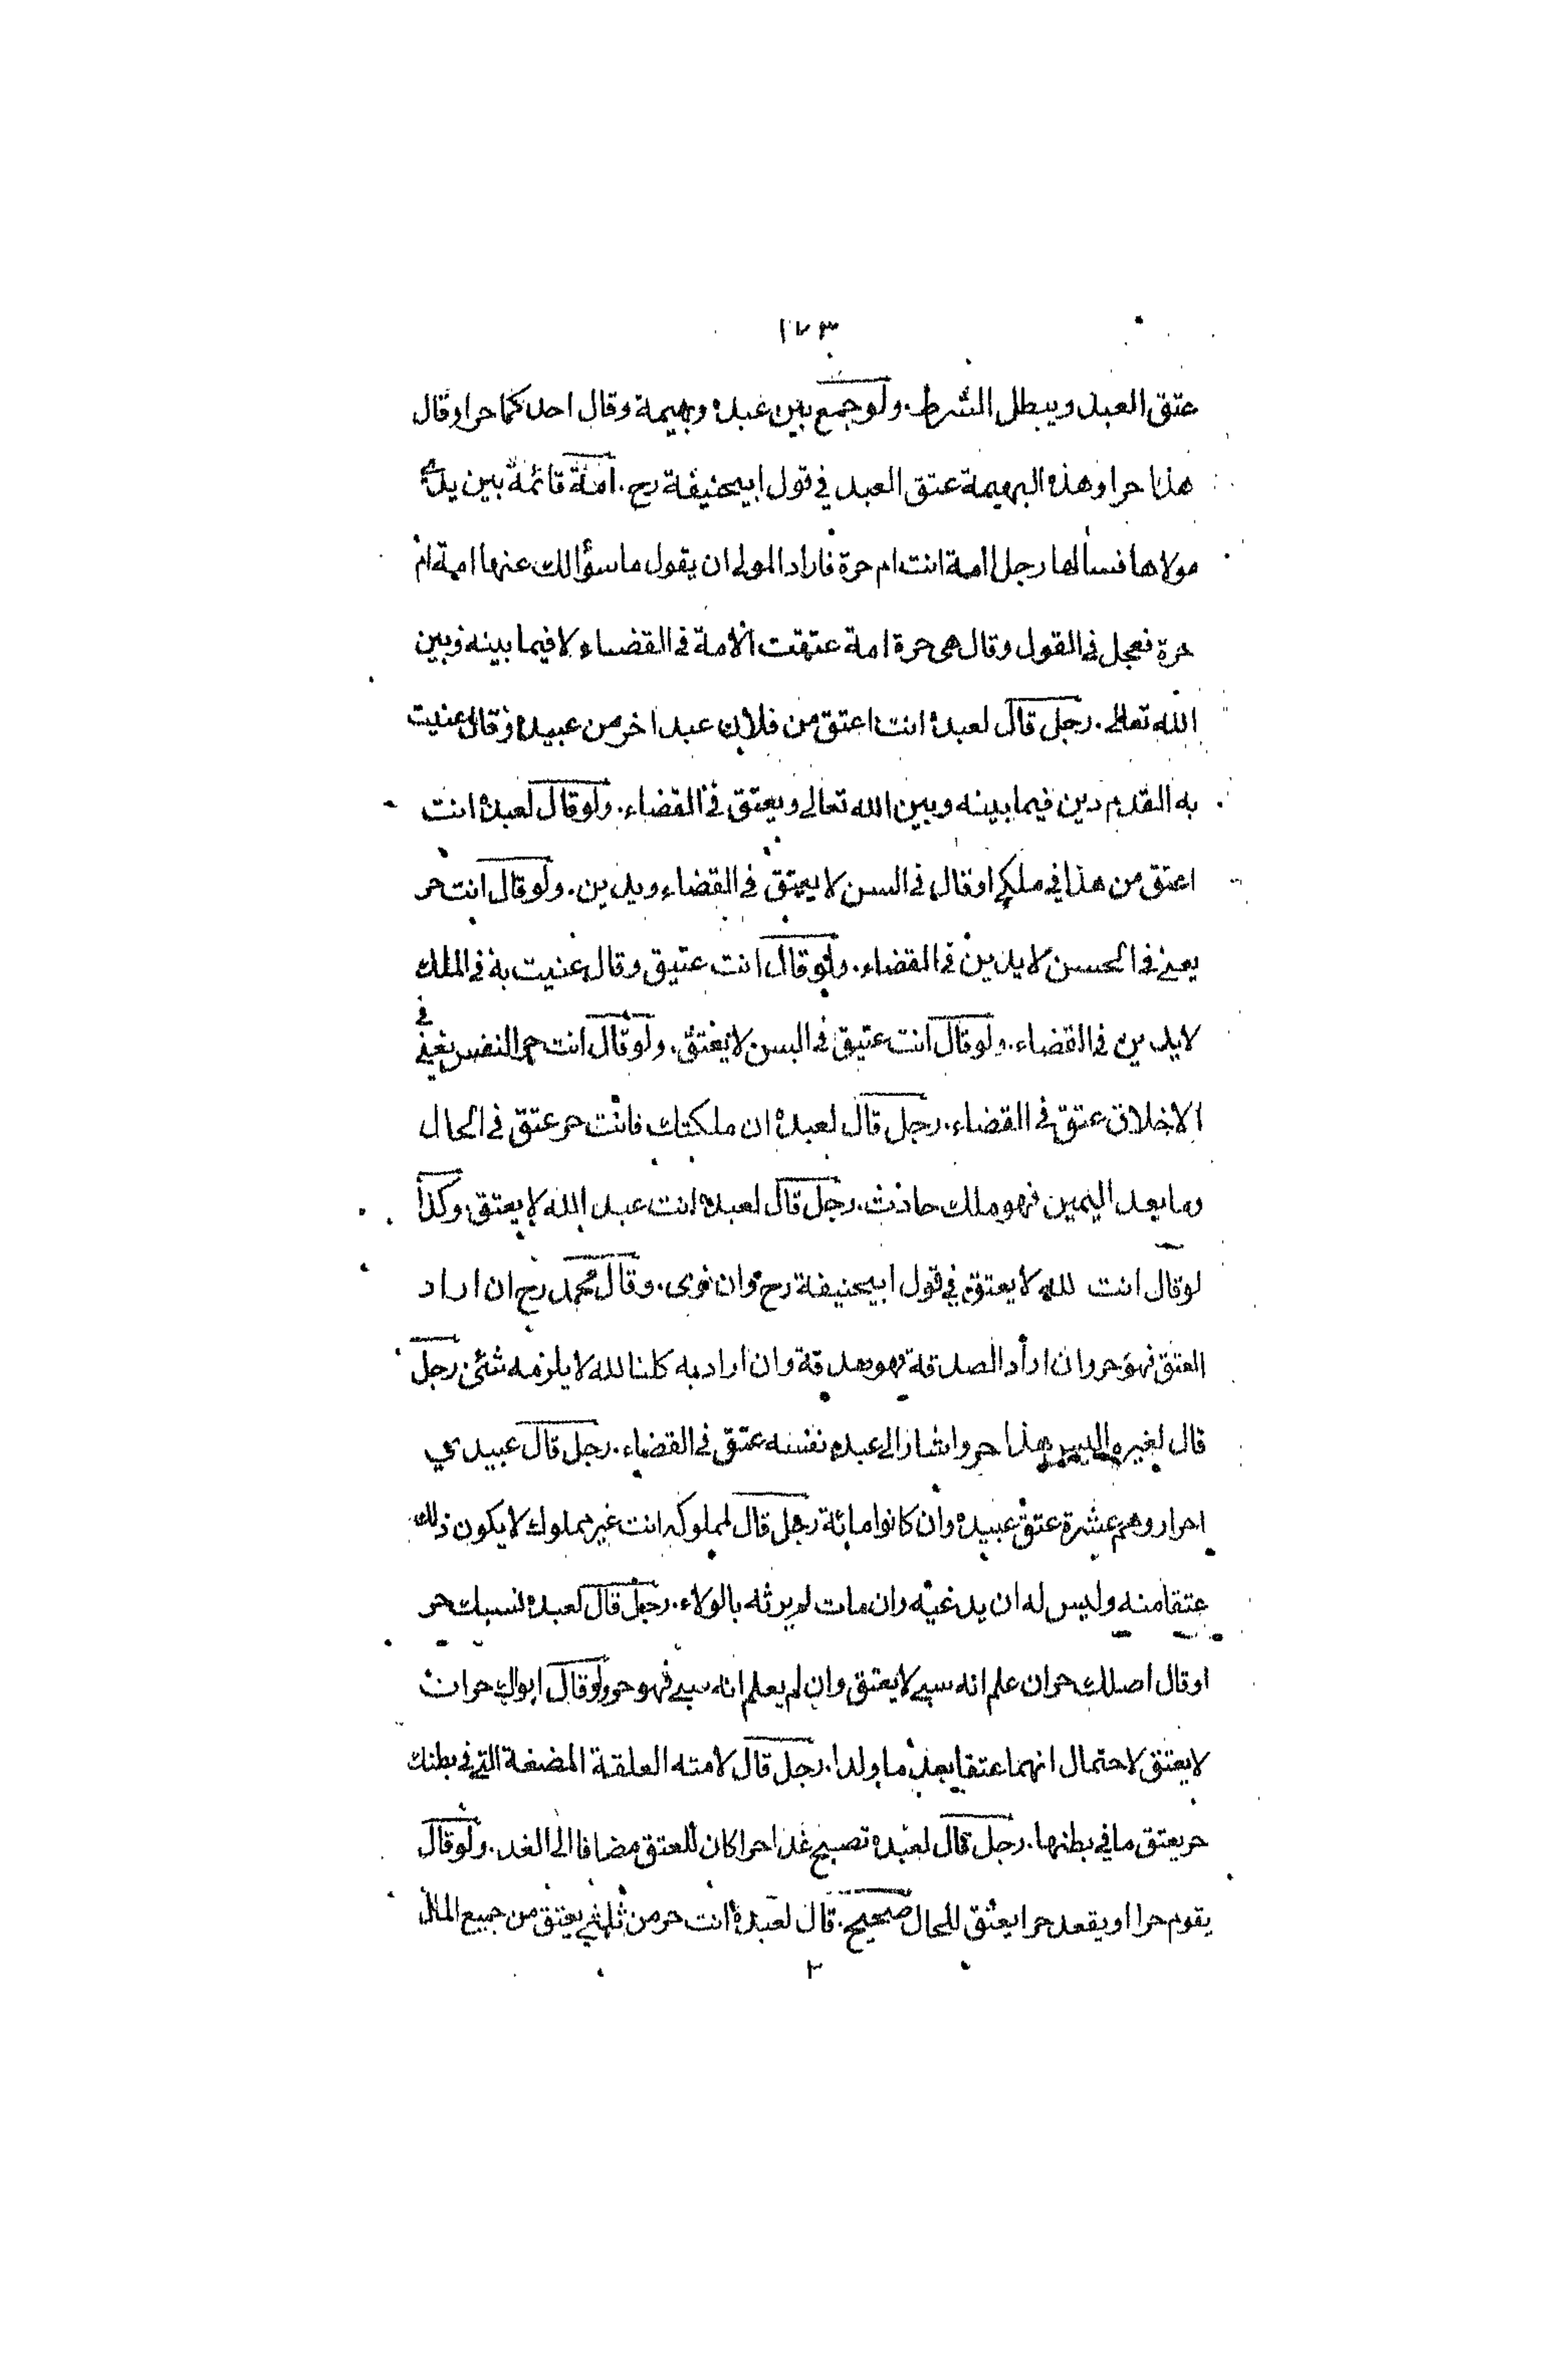 ١٧٣
عتق العبد ويبطل الشرط. ولو جمع بين عبده وبهيمة وقال احدكما حر او قال
هذا حر او هذه البهيمة عتق العبد في قول ابيحنيفة رح. امة قائمة بين يدي
مولاها فسألها رجل أمة انت ام حرة فاراد المولى ان يقول ما سؤالك عنها امة ام
حرة فعجل في القول وقال هى حرة امة عتقت الامة في القضاء لا فيما بينه وبين
الله تعالى. رجل قال لعبده انت اعتق من فلان عبد اخر من عبيده وقال عنيت
به القدم دين فيما بينه وبين الله تعالى ويعتق في القضاء. ولو قال لعبده انت
اعتق من هذا في ملكي او قال في السن لا يعتق في القضاء ويدين. ولو قال انت حر
يعني في الحسن لا يدين في القضاء. ولو قال انت عتيق وقال عنيت به في الملك
لا يدين في القضاء. ولو قال انت عتيق في السن لا يعتق. ولو قال انت حر النفس يعني في
الاخلاق عتق في القضاء. رجل قال لعبده ان ملكتك فانت حر عتق في الحال
وما بعد اليمين فهو ملك حادث. رجل قال لعبده انت عبد الله لا يعتق وكذا
لو قال انت لله لا يعتق في قول ابيحنيفة رح وان نوى. وقال محمد رح ان اراد
العتق فهو حر وان اراد الصدقة فهو صدقة وان اراد به كلنا لله لا يلزمه شئ رجل
قال لغيره اليس هذا حر واشار الى عبده نفسه عتق في القضاء. رجل قال عبيدي
احرار وهم عشرة عتق عبيده وان كانوا مائة رجل قال لمملوكه انت غير مملوك لا يكون ذلك
عتقا منه وليس له ان يدعيه وان مات لم يرثه بالولاء. رجل قال لعبده نسبك حر
او قال اصلك حر ان علم انه سبي لا يعتق وان لم يعلم انه سبي فهو حر ولو قال ابواك حران
لا يعتق لاحتمال انهما عتقا بعد ما ولدا. رجل قال لامته العلقة المضغة التي في بطنك
حر يعتق ما في بطنها. رجل قال لعبده تصبح غدا حرا كان للعتق مضافا الى الغد. ولو قال
يقوم حرا او يقعد حرا يعتق للحال صحيح. قال لعبده انت حر من ثلثي يعتق من جميع المال
٢